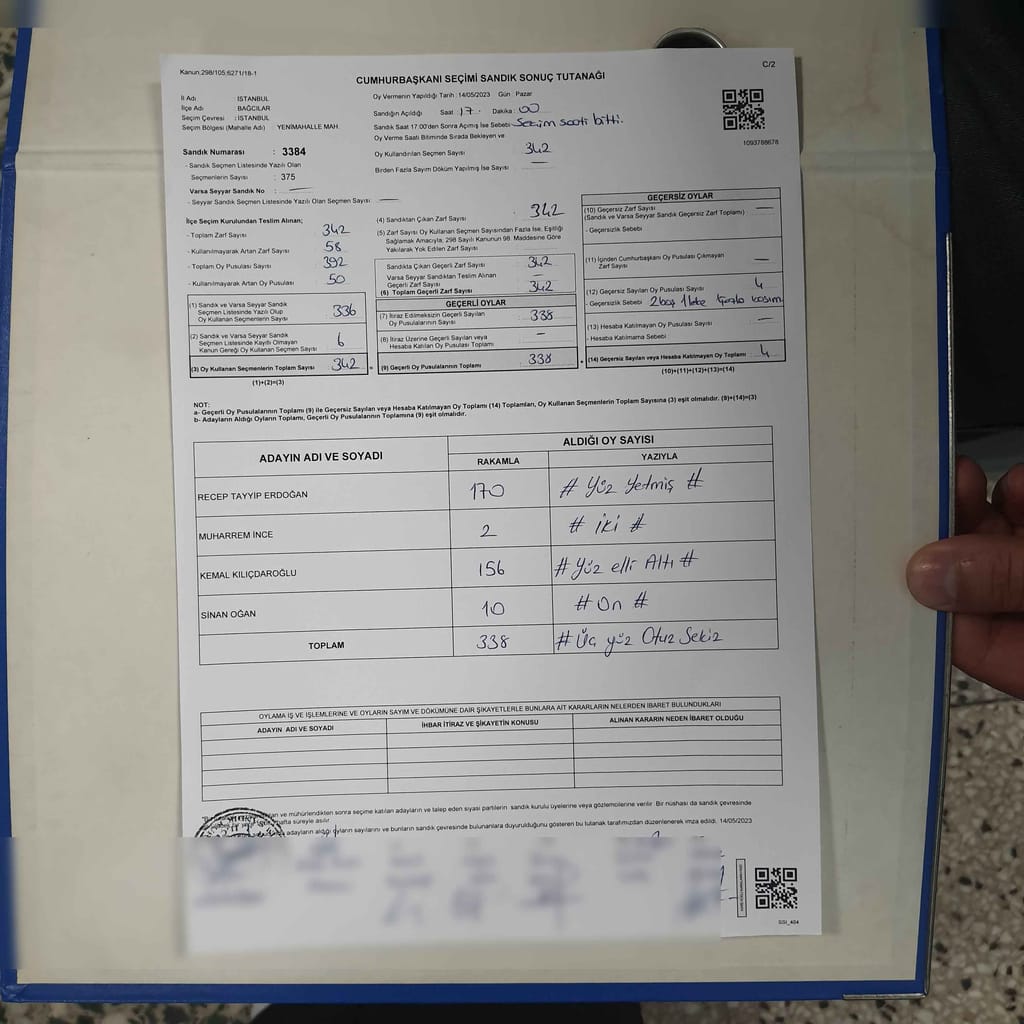 Kanun;298/105;6271/18-1
C/2
CUMHURBAŞKANI SEÇİMİ SANDIK SONUÇ TUTANAĞI
İl Adı : İSTANBUL
İlçe Adı : BAĞCILAR
Seçim Çevresi : İSTANBUL
Seçim Bölgesi (Mahalle Adı) : YENİMAHALLE MAH.
Sandık Numarası : 3384
- Sandık Seçmen Listesinde Yazılı Olan
Seçmenlerin Sayısı : 375
Varsa Seyyar Sandık No : —
- Seyyar Sandık Seçmen Listesinde Yazılı Olan Seçmen Sayısı : —
Oy Vermenin Yapıldığı Tarih : 14/05/2023 Gün : Pazar
Sandığın Açıldığı Saat : 17 Dakika : 00
Sandık Saat 17.00'den Sonra Açılmış İse Sebebi : Seçim saati bitti.
Oy Verme Saati Bitiminde Sırada Bekleyen ve
Oy Kullandırılan Seçmen Sayısı : 342
Birden Fazla Sayım Döküm Yapılmış İse Sayısı : —
1093788678
İlçe Seçim Kurulundan Teslim Alınan;
- Toplam Zarf Sayısı : 342
- Kullanılmayarak Artan Zarf Sayısı : 58
- Toplam Oy Pusulası Sayısı : 392
- Kullanılmayarak Artan Oy Pusulası Sayısı : 50
(1) Sandık ve Varsa Seyyar Sandık
Seçmen Listesinde Yazılı Olup
Oy Kullanan Seçmenlerin Sayısı : 336
(2) Sandık ve Varsa Seyyar Sandık
Seçmen Listesinde Kayıtlı Olmayan
Kanun Gereği Oy Kullanan Seçmen Sayısı : 6
(3) Oy Kullanan Seçmenlerin Toplam Sayısı : 342
(1)+(2)=(3)
(4) Sandıktan Çıkan Zarf Sayısı : 342
(5) Zarf Sayısı Oy Kullanan Seçmen Sayısından Fazla İse, Eşitliği
Sağlamak Amacıyla; 298 Sayılı Kanunun 98. Maddesine Göre
Yakılarak Yok Edilen Zarf Sayısı
Sandıkta Çıkan Geçerli Zarf Sayısı : 342
Varsa Seyyar Sandıktan Teslim Alınan
Geçerli Zarf Sayısı : —
(6) Toplam Geçerli Zarf Sayısı : 342
GEÇERLİ OYLAR
(7) İtiraz Edilmeksizin Geçerli Sayılan
Oy Pusulalarının Sayısı : 338
(8) İtiraz Üzerine Geçerli Sayılan veya
Hesaba Katılan Oy Pusulası Toplamı : —
(9) Geçerli Oy Pusulalarının Toplamı : 338
GEÇERSİZ OYLAR
(10) Geçersiz Zarf Sayısı : —
(Sandık ve Varsa Seyyar Sandık Geçersiz Zarf Toplamı)
- Geçersizlik Sebebi :
(11) İçinden Cumhurbaşkanı Oy Pusulası Çıkmayan
Zarf Sayısı : —
(12) Geçersiz Sayılan Oy Pusulası Sayısı : 4
- Geçersizlik Sebebi : 2 boş 1 leke
(13) Hesaba Katılmayan Oy Pusulası Sayısı : —
- Hesaba Katılmama Sebebi :
(14) Geçersiz Sayılan veya Hesaba Katılmayan Oy Toplamı : 4
(10)+(11)+(12)+(13)=(14)
NOT:
a- Geçerli Oy Pusulalarının Toplamı (9) ile Geçersiz Sayılan veya Hesaba Katılmayan Oy Toplamı (14) Toplamları, Oy Kullanan Seçmenlerin Toplam Sayısına (3) eşit olmalıdır. (9)+(14)=(3)
b- Adayların Aldığı Oyların Toplamı, Geçerli Oy Pusulalarının Toplamına (9) eşit olmalıdır.
ADAYIN ADI VE SOYADI
ALDIĞI OY SAYISI
RAKAMLA YAZIYLA
RECEP TAYYİP ERDOĞAN 170 # Yüz Yetmiş #
MUHARREM İNCE 2 # iki #
KEMAL KILIÇDAROĞLU 156 # Yüz elli Altı #
SİNAN OĞAN 10 # On #
TOPLAM 338 # Üç yüz Otuz Sekiz
OYLAMA İŞ VE İŞLEMLERİNE VE OYLARIN SAYIM VE DÖKÜMÜNE DAİR ŞİKAYETLERLE BUNLARA AİT KARARLARIN NELERDEN İBARET BULUNDUKLARI
ADAYIN ADI VE SOYADI İHBAR İTİRAZ VE ŞİKAYETİN KONUSU ALINAN KARARIN NEDEN İBARET OLDUĞU
ve mühürlendikten sonra seçime katılan adayların ve talep eden siyasi partilerin sandık kurulu üyelerine veya gözlemcilerine verilir. Bir nüshası da sandık çevresinde
hafta süreyle asılır.
adayların aldığı oyların sayılarını ve bunların sandık çevresinde bulunanlara duyurulduğunu gösteren bu tutanak tarafımızdan düzenlenerek imza edildi. 14/05/2023